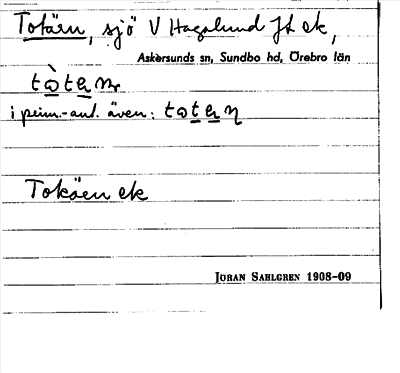 Totäen, sjö V Hagalund Jt ek,
Askersunds sn, Sundbo hd, Örebro län
i prim.-anl. även:
Tokäen ek
JÖRAN SAHLGREN 1908-09